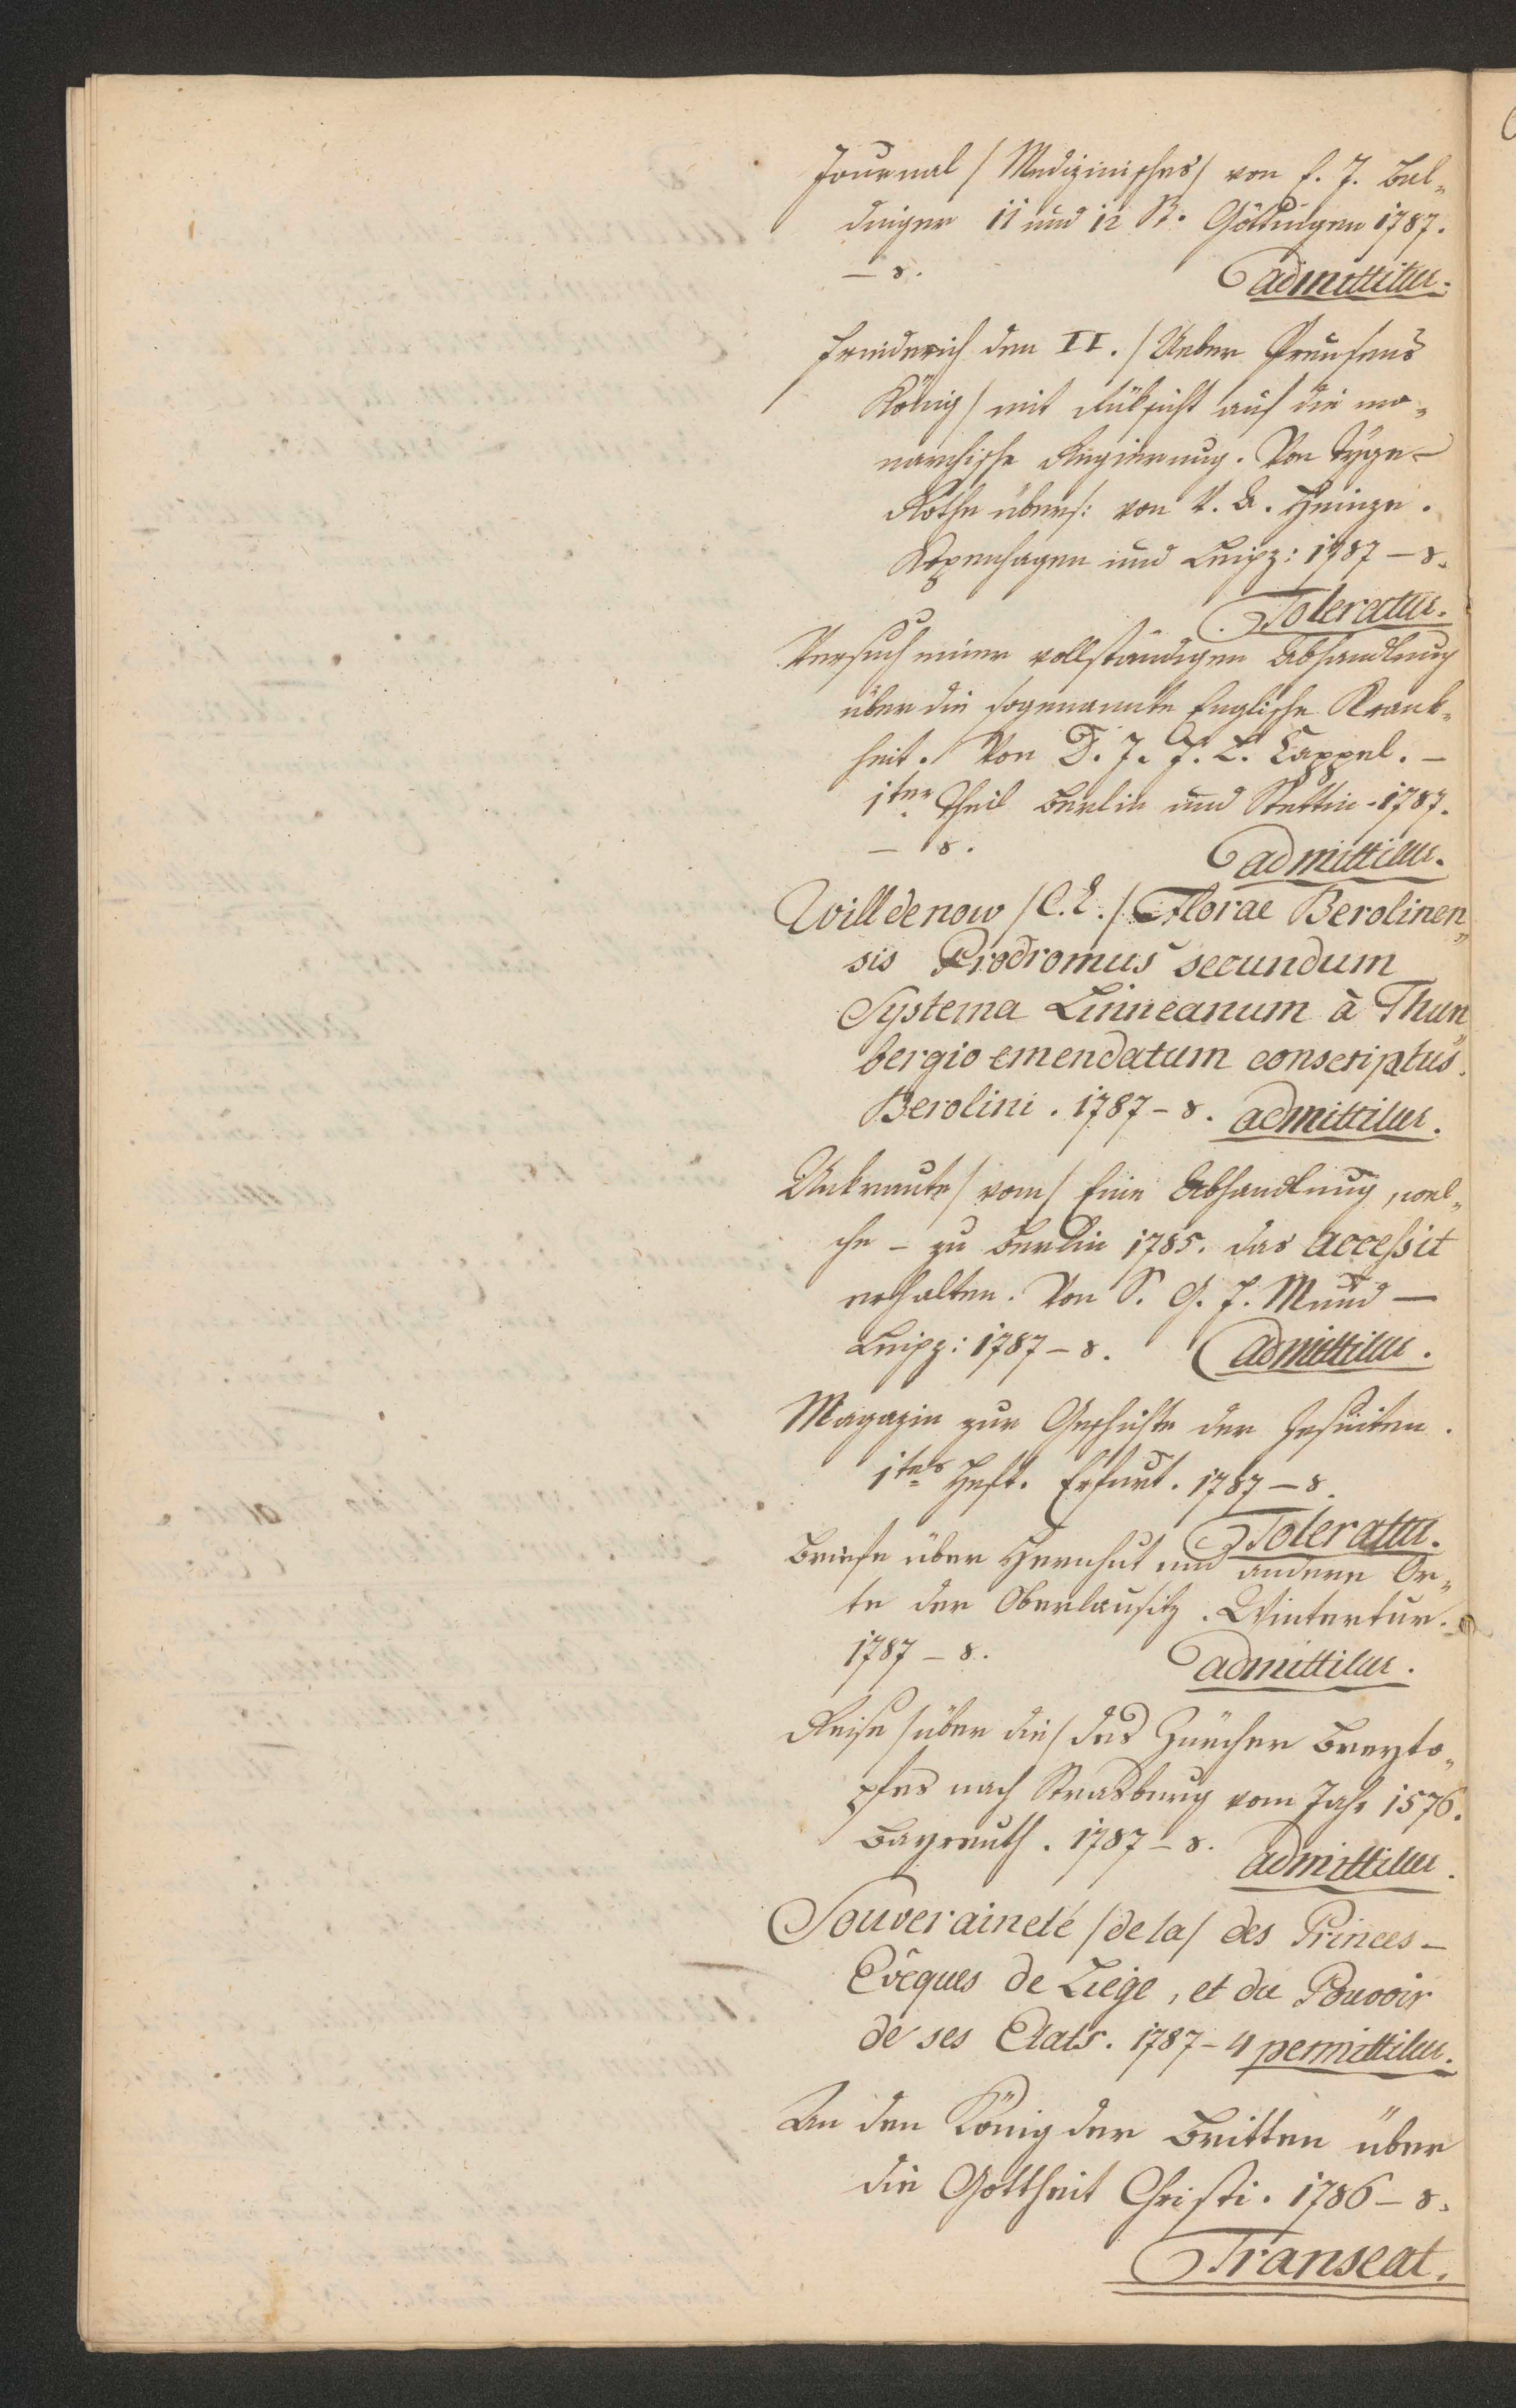 Journal /Medizinisches/ von E. J. Bal„
dinger 11 und 12 St. Göttingen 1787.
– 8. admittitur.
Friederich den II. /Ueber Preusens
König/ mit Rüksicht auf die mo„
narchische Regierung. Von Tyge–
Rothe übers: von V. A. Heinze.
Kopenhagen und Leipz: 1787 – 8.
Toleratur.
Versuch einer vollständigen Abhandlung
über die sogenannte Englische Krank„
heit. Von D. J. F. L. Cappel. –
1ter Theil Berlin und Stettin - 1787.
– 8. admittitur.
Willdenow /C. L./ Florae Berolinen„
sis Prodromus secundum
Systema Linneanum à Thun„
bergio emendatum conscriptus.
Berolini. 1787 – 8. admittitur.
Unkraute /vom/ Eine Abhandlung, wel„
che – zu Berlin 1785. das Accessit
erhalten. Von S. G. F. Mund –
Leipz: 1787 – 8. admittitur.
Magazin zur Geschichte der Jesuiten.
1tes Heft. Erfurt. 1787 – 8.
Toleratur.
Briefe über Hernhut und andere Or„
te der Oberlausitz. Wintertur.
1787 – 8. admittitur.
Reise /über die/ des Zürcher Breyto„
pfes nach Strasburg vom Jahr 1576.
Bayreuth. 1787 – 8. admittitur.
Souveraineté /de la/ des Princes –
Evêques de Liege, et du Pouvoir
de ses Etats. 1787 – 4 permittitur.
An den König der Britten über
die Gottheit Christi. 1786 – 8.
Transeat.